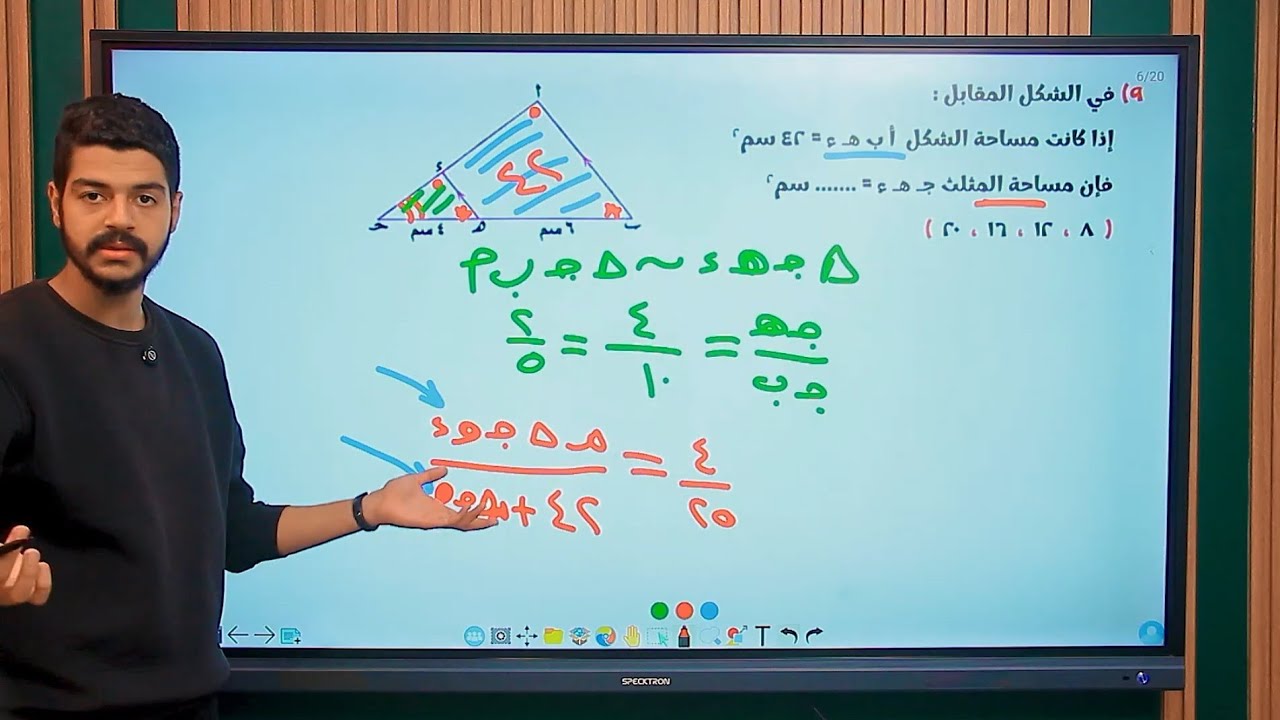 6/20
٩) في الشكل المقابل :
إذا كانت مساحة الشكل أ ب هـ ء = ٤٢ سم٢
فإن مساحة المثلث جـ هـ ء = ....... سم٢
( ٨ ، ١٢ ، ١٦ ، ٢٠ )
أ
ء
٤٢
جـ ٤ سم هـ ٦ سم ب
Δ جـ هـ ء ~ Δ جـ ب أ
جـ هـ / جـ ب = ٤ / ١٠ = ٢ / ٥
٤ / ٢٥ =
٤٢ +
T
SPECKTRON